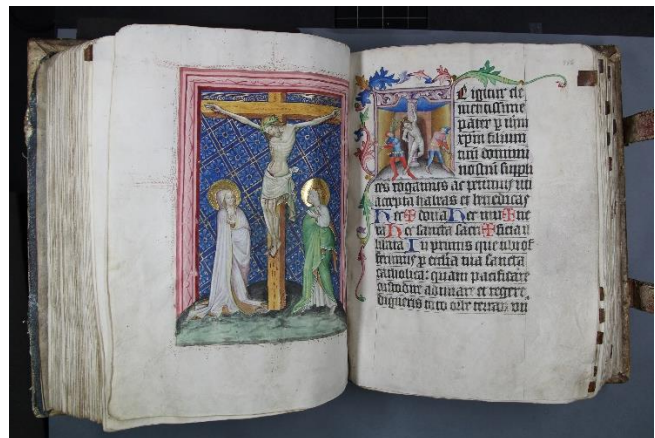 E igitur cle
mentissime
pater p ihm
xpm filium
tuum dominum
nostrum suppli
ces rogamus ac petimus uti
accepta habeas et benedicas
Hec ✠ dona Hec mu ✠ ne
ra Hec sancta sacri ✠ ficia il
libata In primis que tibi of
ferimus p ecclia tua sancta
catholica: quam pacificare
custodire adunare et regere
digneris toto orbe terrarum un